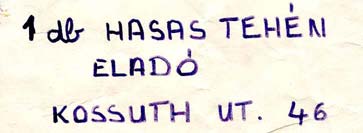 1 db HASAS TEHÉN
ELADÓ
KOSSUTH UT. 46